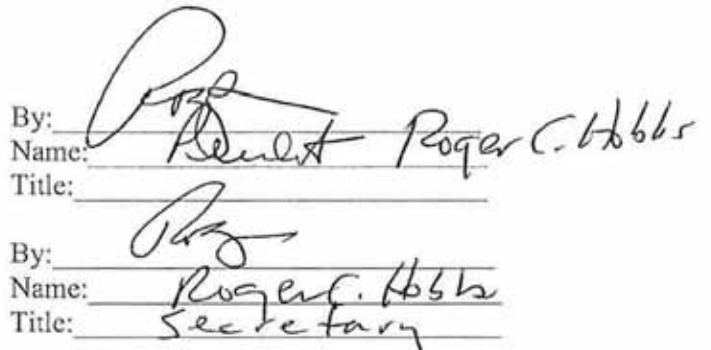 By:
Name: President Roger C. Hobbs
Title:
By:
Name: Roger C. Hobbs
Title: Secretary